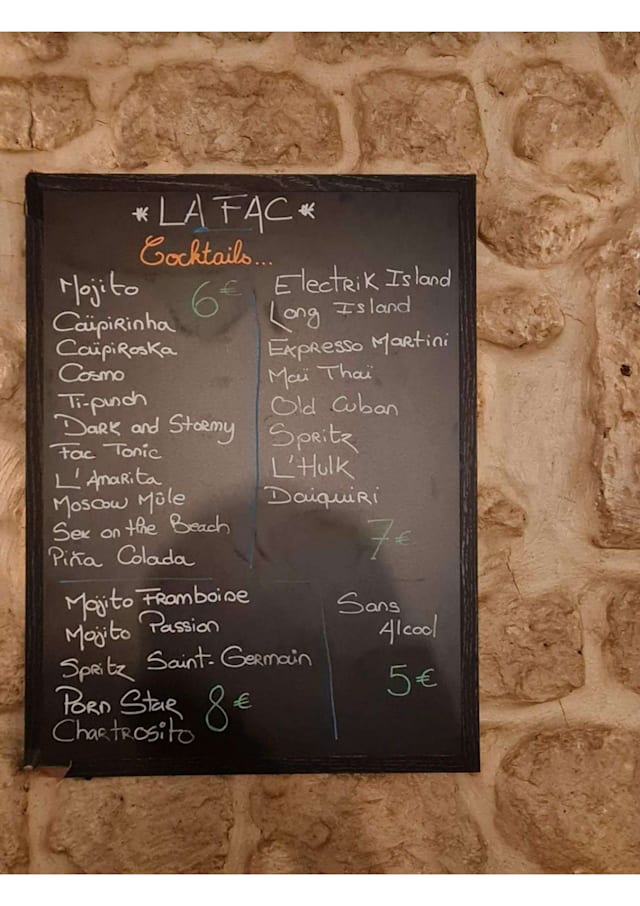 * LA FAC *
Cocktails...
Mojito 6€
Caïpirinha
Caïpiroska
Cosmo
Ti-punch
Dark and Stormy
Fac Tonic
L'Amarita
Moscow Mûle
Sex on the Beach
Piña Colada
Electrik Island
Long Island
Expresso Martini
Maï Thaï
Old Cuban
Spritz
L'Hulk
Daiquiri
7€
Mojito Framboise
Mojito Passion
Spritz Saint-Germain
Porn Star 8€
Chartrosito
Sans
Alcool
5€